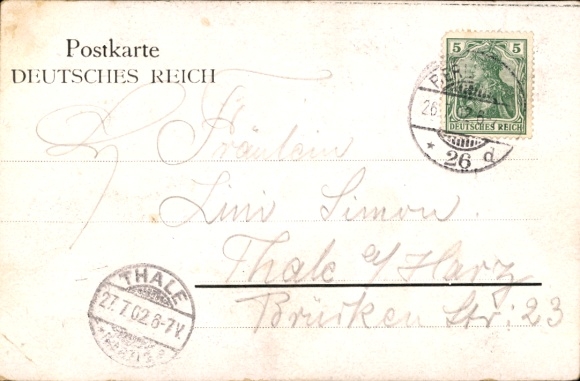 Postkarte
DEUTSCHES REICH
5 5
DEUTSCHES REICH
26 7 02
* 26 d
Fräulein
Lini Simon.
Thale a/Harz
Brücken Str: 23
THALE
27.7.02.8-7V.